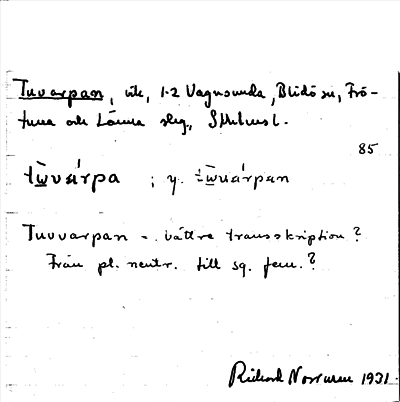 Tuvarpan, ute, 1-2 Vagnsunda, Blidö sn, Frö-
tuna och Länna skg, Sthlms l.
85
tὼvárpa ; y. tὼvárpan
Tuvvarpan - bättre transskription?
Från pl. neutr. till sg. fem.?
Rickard Norrman 1931